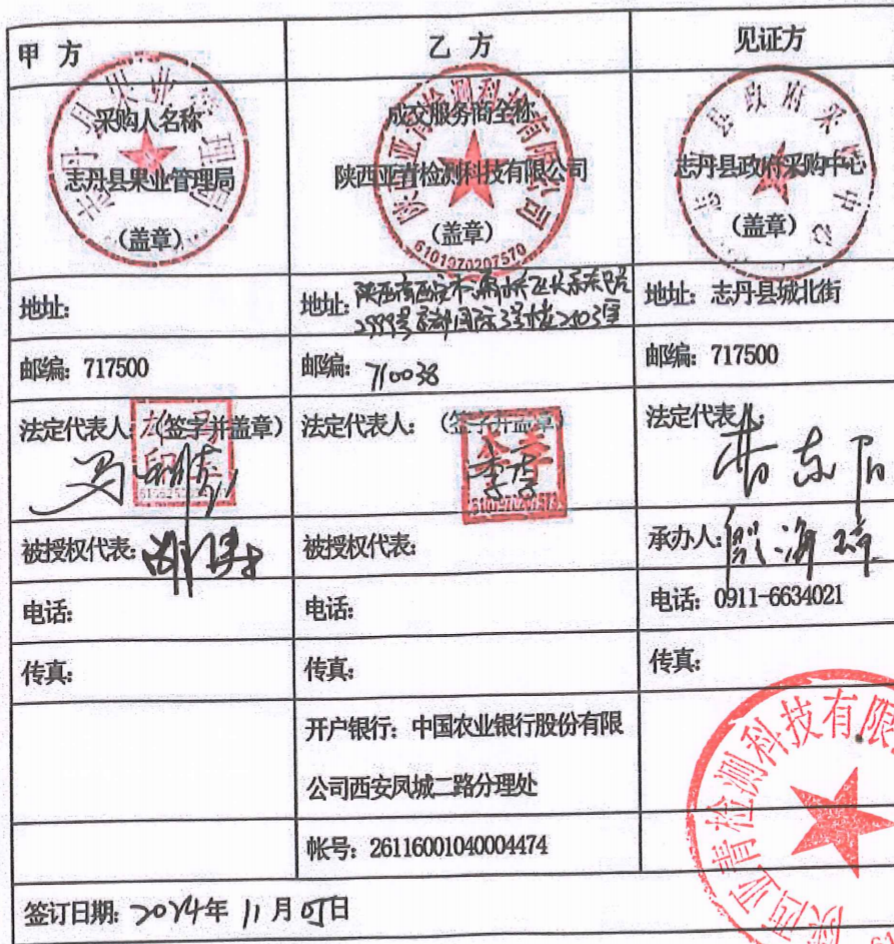 甲 方
乙 方
见证方
采购人名称
志丹县果业管理局
(盖章)
成交服务商全称
陕西亚青检测科技有限公司
(盖章)
6101970207570
志丹县政府采购中心
(盖章)
地址:
地址:
2999号 国际3号楼
地址: 志丹县城北街
邮编: 717500
邮编: 710038
邮编: 717500
法定代表人: (签字并盖章)
法定代表人: (签字并盖章)
法定代表人:
被授权代表:
被授权代表:
承办人:
电话:
电话:
电话: 0911-6634021
传真:
传真:
传真:
开户银行: 中国农业银行股份有限
公司西安凤城二路分理处
帐号: 26116001040004474
签订日期: 2014年 11月 日
陕西亚青检测科技有限